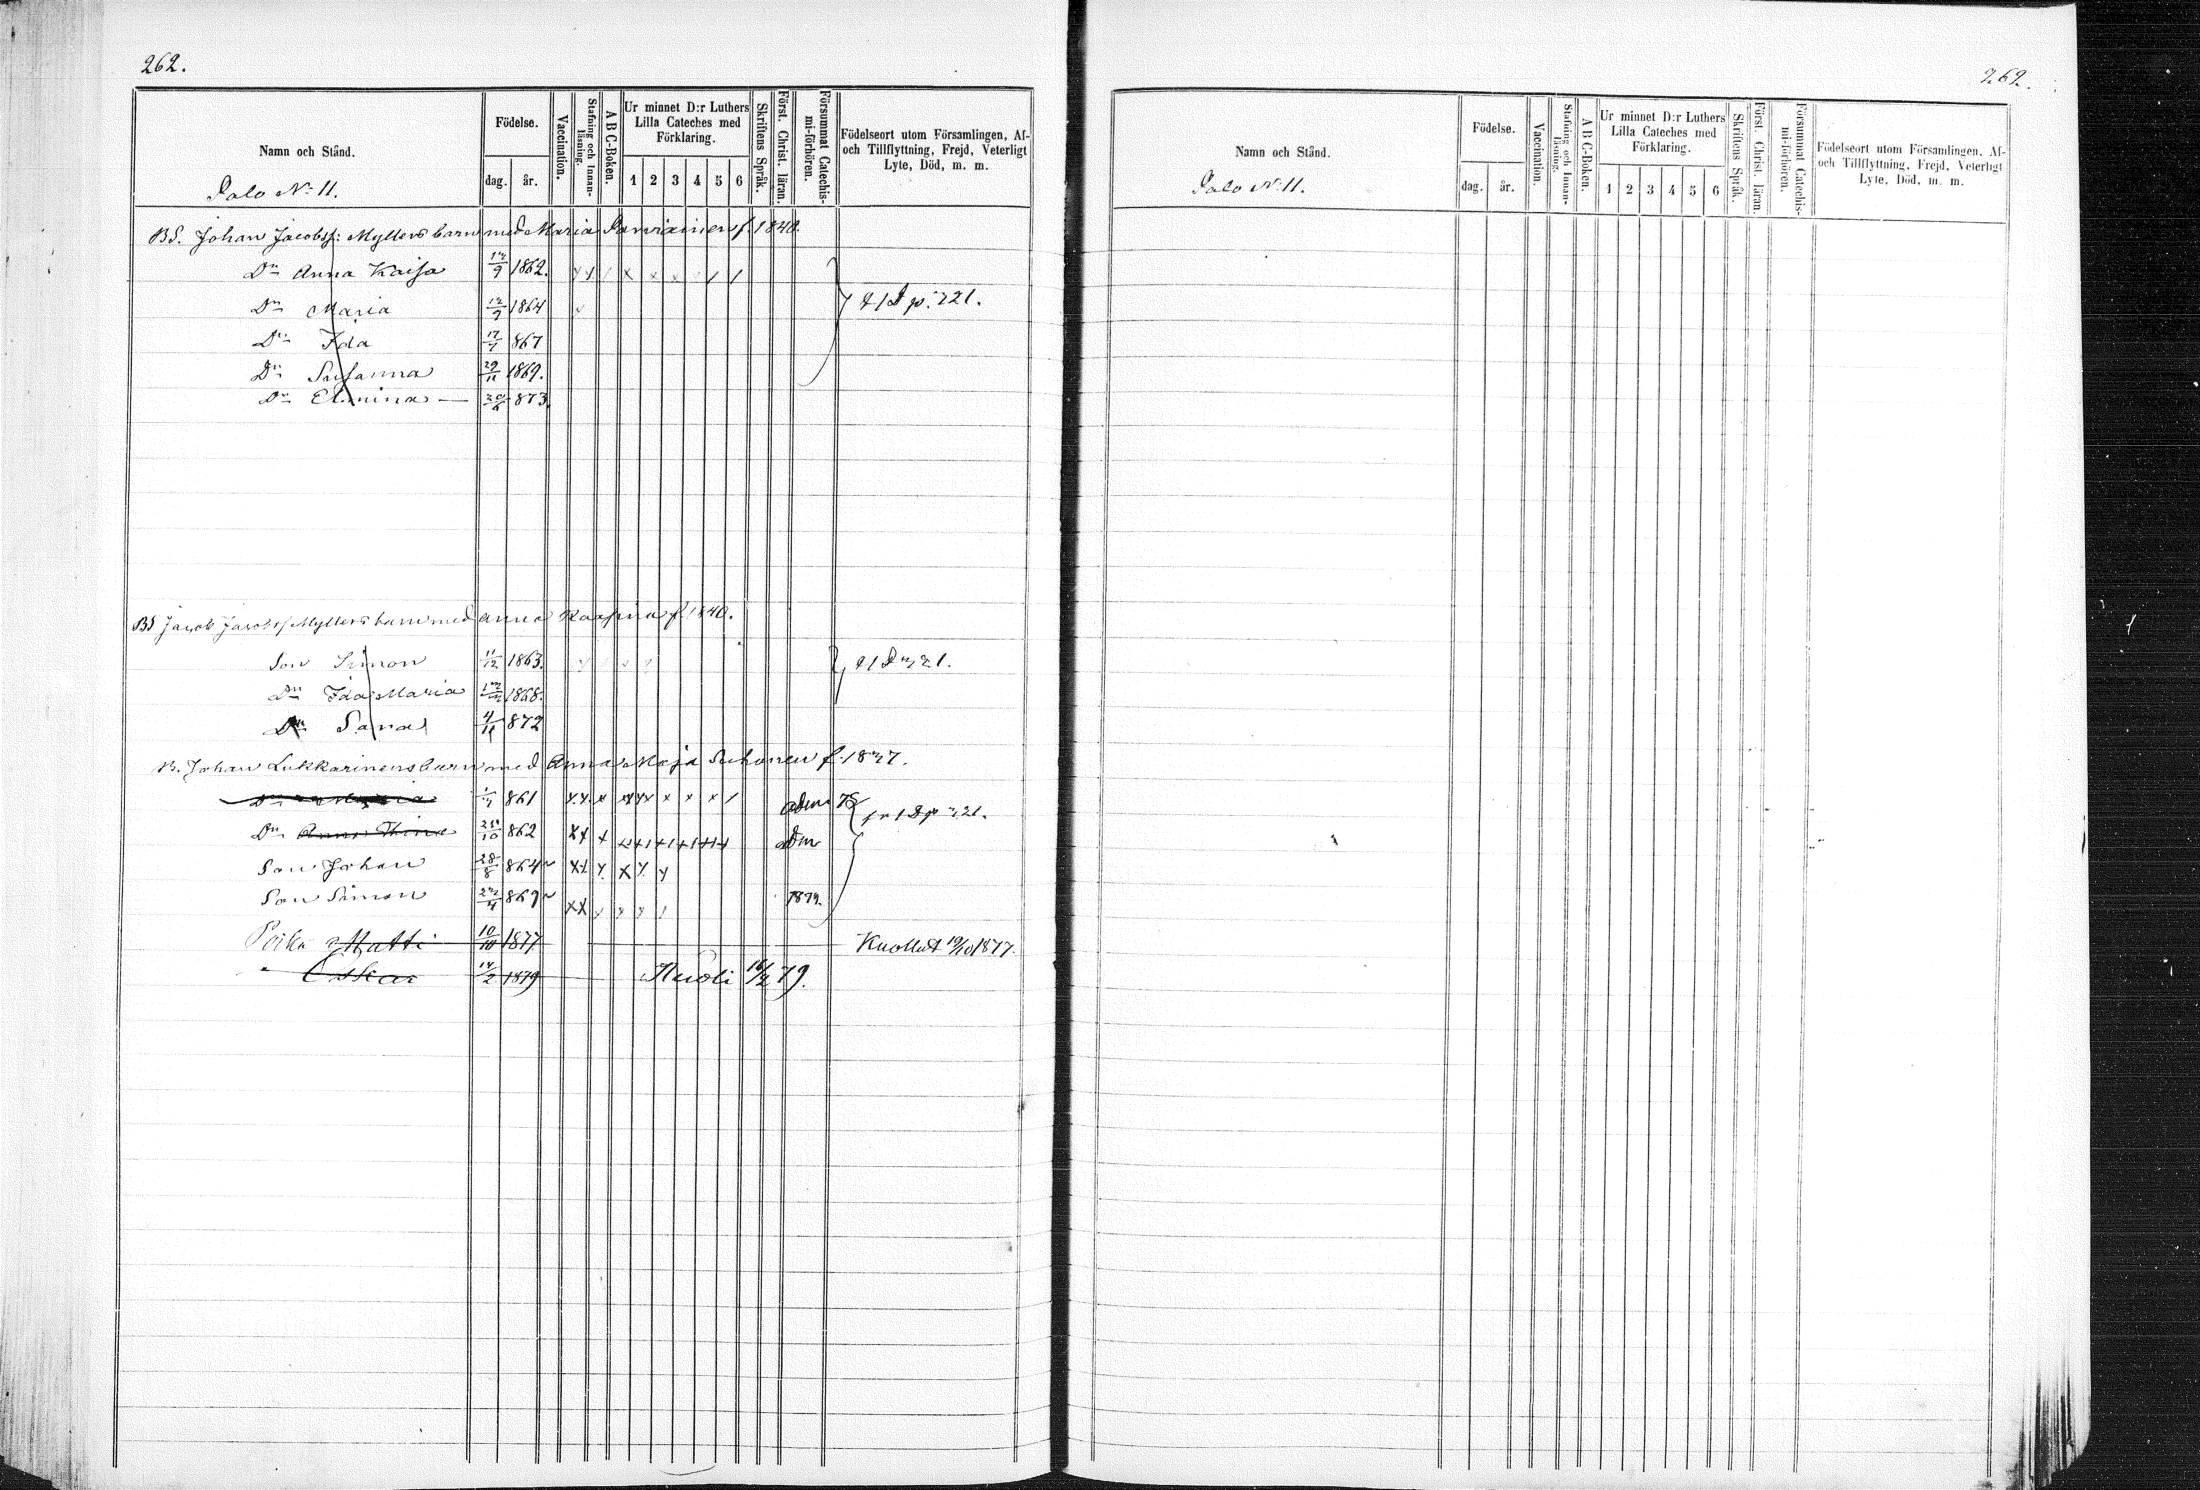 262.
Namn och Stånd.
Födelse.
dag.
år.
Vaccination.
Stafning och Innan-
läsning.
A B C-Boken.
Ur minnet D:r Luthers
Lilla Cateches med
Förklaring.
1 2 3 4 5 6
Skriftens Språk.
Först. Christ. läran.
Försummat Catechis-
mi-förhören.
Födelseort utom Församlingen, Af-
och Tillflyttning, Frejd, Veterligt
Lyte, Död, m. m.
Palo No 11.
BS. Johan Jacobss: Myllers barn med Maria Parviainen f. 1840.
Dr Anna Kaisa 1862.
Dr Maria 1864
p. 721.
Dr Ida 17/7 867
Dr Susanna 29/11 1869.
Dr Elmina — 873.
BS Jacob Jacobss Myllers barn med Anna f. 1840.
Son Simon 11/12 1863.
721.
Dr Ida Maria 1868.
Dr Sanna 4/11 872
B. Johan Lukkarinens barn med Anna Maja Suhonen f. 1837.
Dr Maria 861
Dr Anna Stina 862
p 721.
Son Johan 28/8 864
Son Simon 869 1879.
Poika Matti 10/10 1877 Kuollut 19/10 1877.
" Oskar 14/2 1879 Kuoli 16/2 79.
262.
Namn och Stånd.
Födelse.
dag.
år.
Vaccination.
Stafning och Innan-
läsning.
A B C-Boken.
Ur minnet D:r Luthers
Lilla Cateches med
Förklaring.
1 2 3 4 5 6
Skriftens Språk.
Först. Christ. läran.
Försummat Catechis-
mi-förhören.
Födelseort utom Församlingen, Af-
och Tillflyttning, Frejd, Veterligt
Lyte, Död, m. m.
Palo No 11.